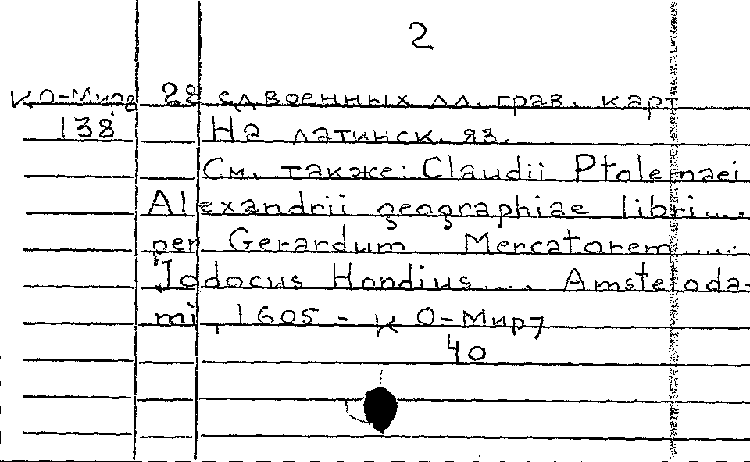 2
К О-Мир8 28 сдвоенных лл. грав. карт
138 На латинск. яз.
См. также: Claudii Ptolemaei
Alexandrii geographiae libri....
per Gerardum Mercatorem....
Jodocus Hondius.... Amsteroda-
mi, 1605 - К О-Мир7
40